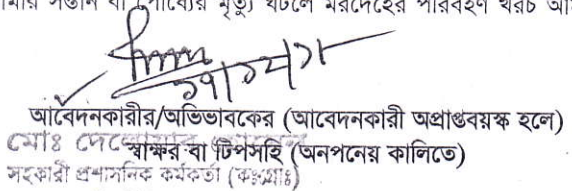 সন্তান বা পোষ্যের মৃত্যু ঘটলে মরদেহের পরিবহণ খরচ
আবেদনকারীর/অভিভাবকের (আবেদনকারী অপ্রাপ্তবয়স্ক হলে)
মোঃ
স্বাক্ষর বা টিপসহি (অনপনেয় কালিতে)
সহকারী প্রশাসনিক কর্মকর্তা